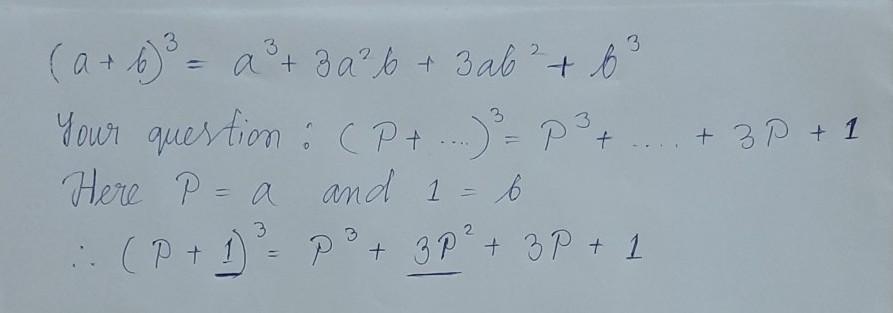 (a + b)³ = a³ + 3a²b + 3ab² + b³
Your question : (P + ....)³ = P³ + .... + 3P + 1
Here P = a and 1 = b
∴ (P + 1)³ = P³ + 3P² + 3P + 1